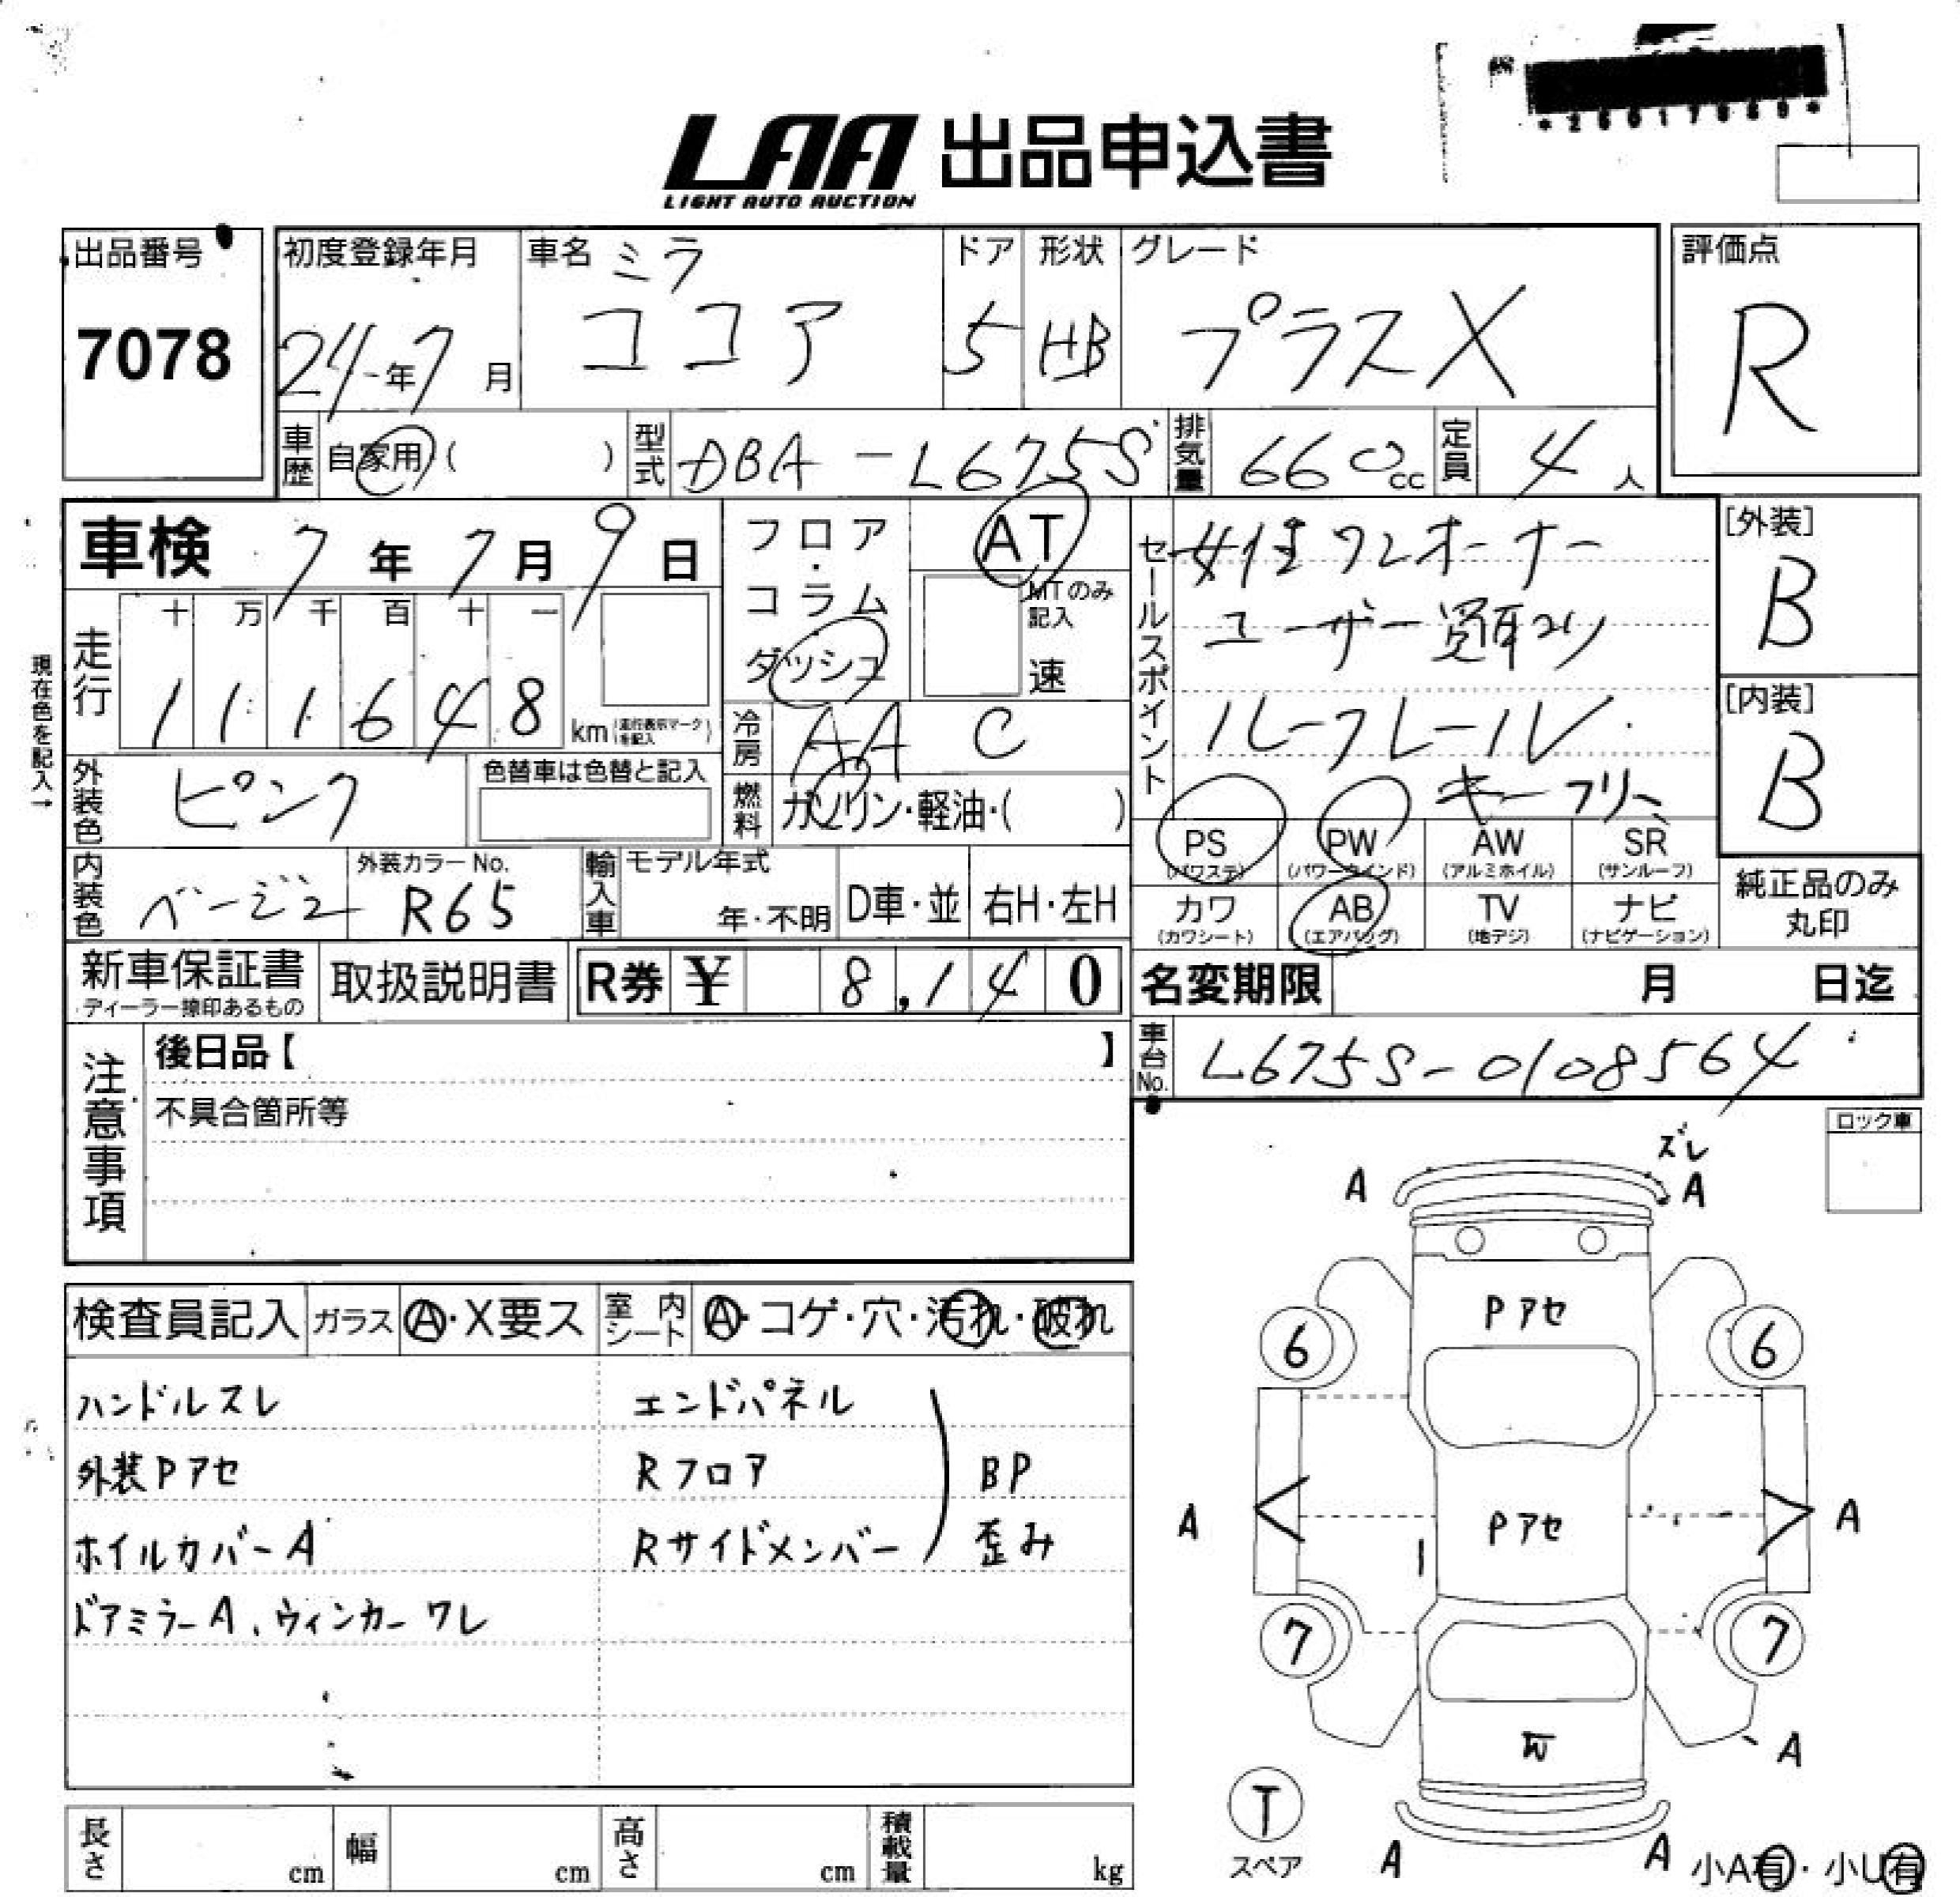 *26017060*
LAA 出品申込書
LIGHT AUTO AUCTION
出品番号
7078
初度登録年月
24年7月
車名 ミラ
ココア
ドア
5
形状
HB
グレード
プラスX
評価点
R
車歴 自家用 ( )
型式 DBA-L675S
排気量 660cc
定員 4人
車検 7年7月9日
フロア・コラム
ダッシュ
AT
MTのみ記入
速
セールスポイント
女性ワンオーナー
ユーザー買取り
ルーフレール
キーフリー
[外装]
B
[内装]
B
現在色を記入→
走行
十 万 千 百 十 一
1 1 1 6 4 8
km (走行表示マークを記入)
冷房 AAC
燃料 ガソリン・軽油・( )
外装色 ピンク
色替車は色替と記入
PS (パワステ)
PW (パワーウインド)
AW (アルミホイル)
SR (サンルーフ)
カワ (カワシート)
AB (エアバッグ)
TV (地デジ)
ナビ (ナビゲーション)
純正品のみ
丸印
内装色 ベージュ
外装カラーNo.
R65
輸入車 モデル年式
年・不明
D車・並
右H・左H
新車保証書
ディーラー捺印あるもの
取扱説明書
R券 ¥ 8,140
名変期限 月 日迄
車台No. L675S-0108564
注意事項
後日品【 】
不具合箇所等
ロック車
検査員記入 ガラス A・X要ス
室内シート A・コゲ・穴・汚れ・破れ
ハンドルスレ
外装Pアセ
ホイルカバーA
ドアミラーA、ウィンカーワレ
エンドパネル
Rフロア
Rサイドメンバー
BP
歪み
ズレ
A A
Pアセ
6 6
A Pアセ A
7 7
W
A
T
スペア
A A
小A有・小U有
長さ cm
幅 cm
高さ cm
積載量 kg